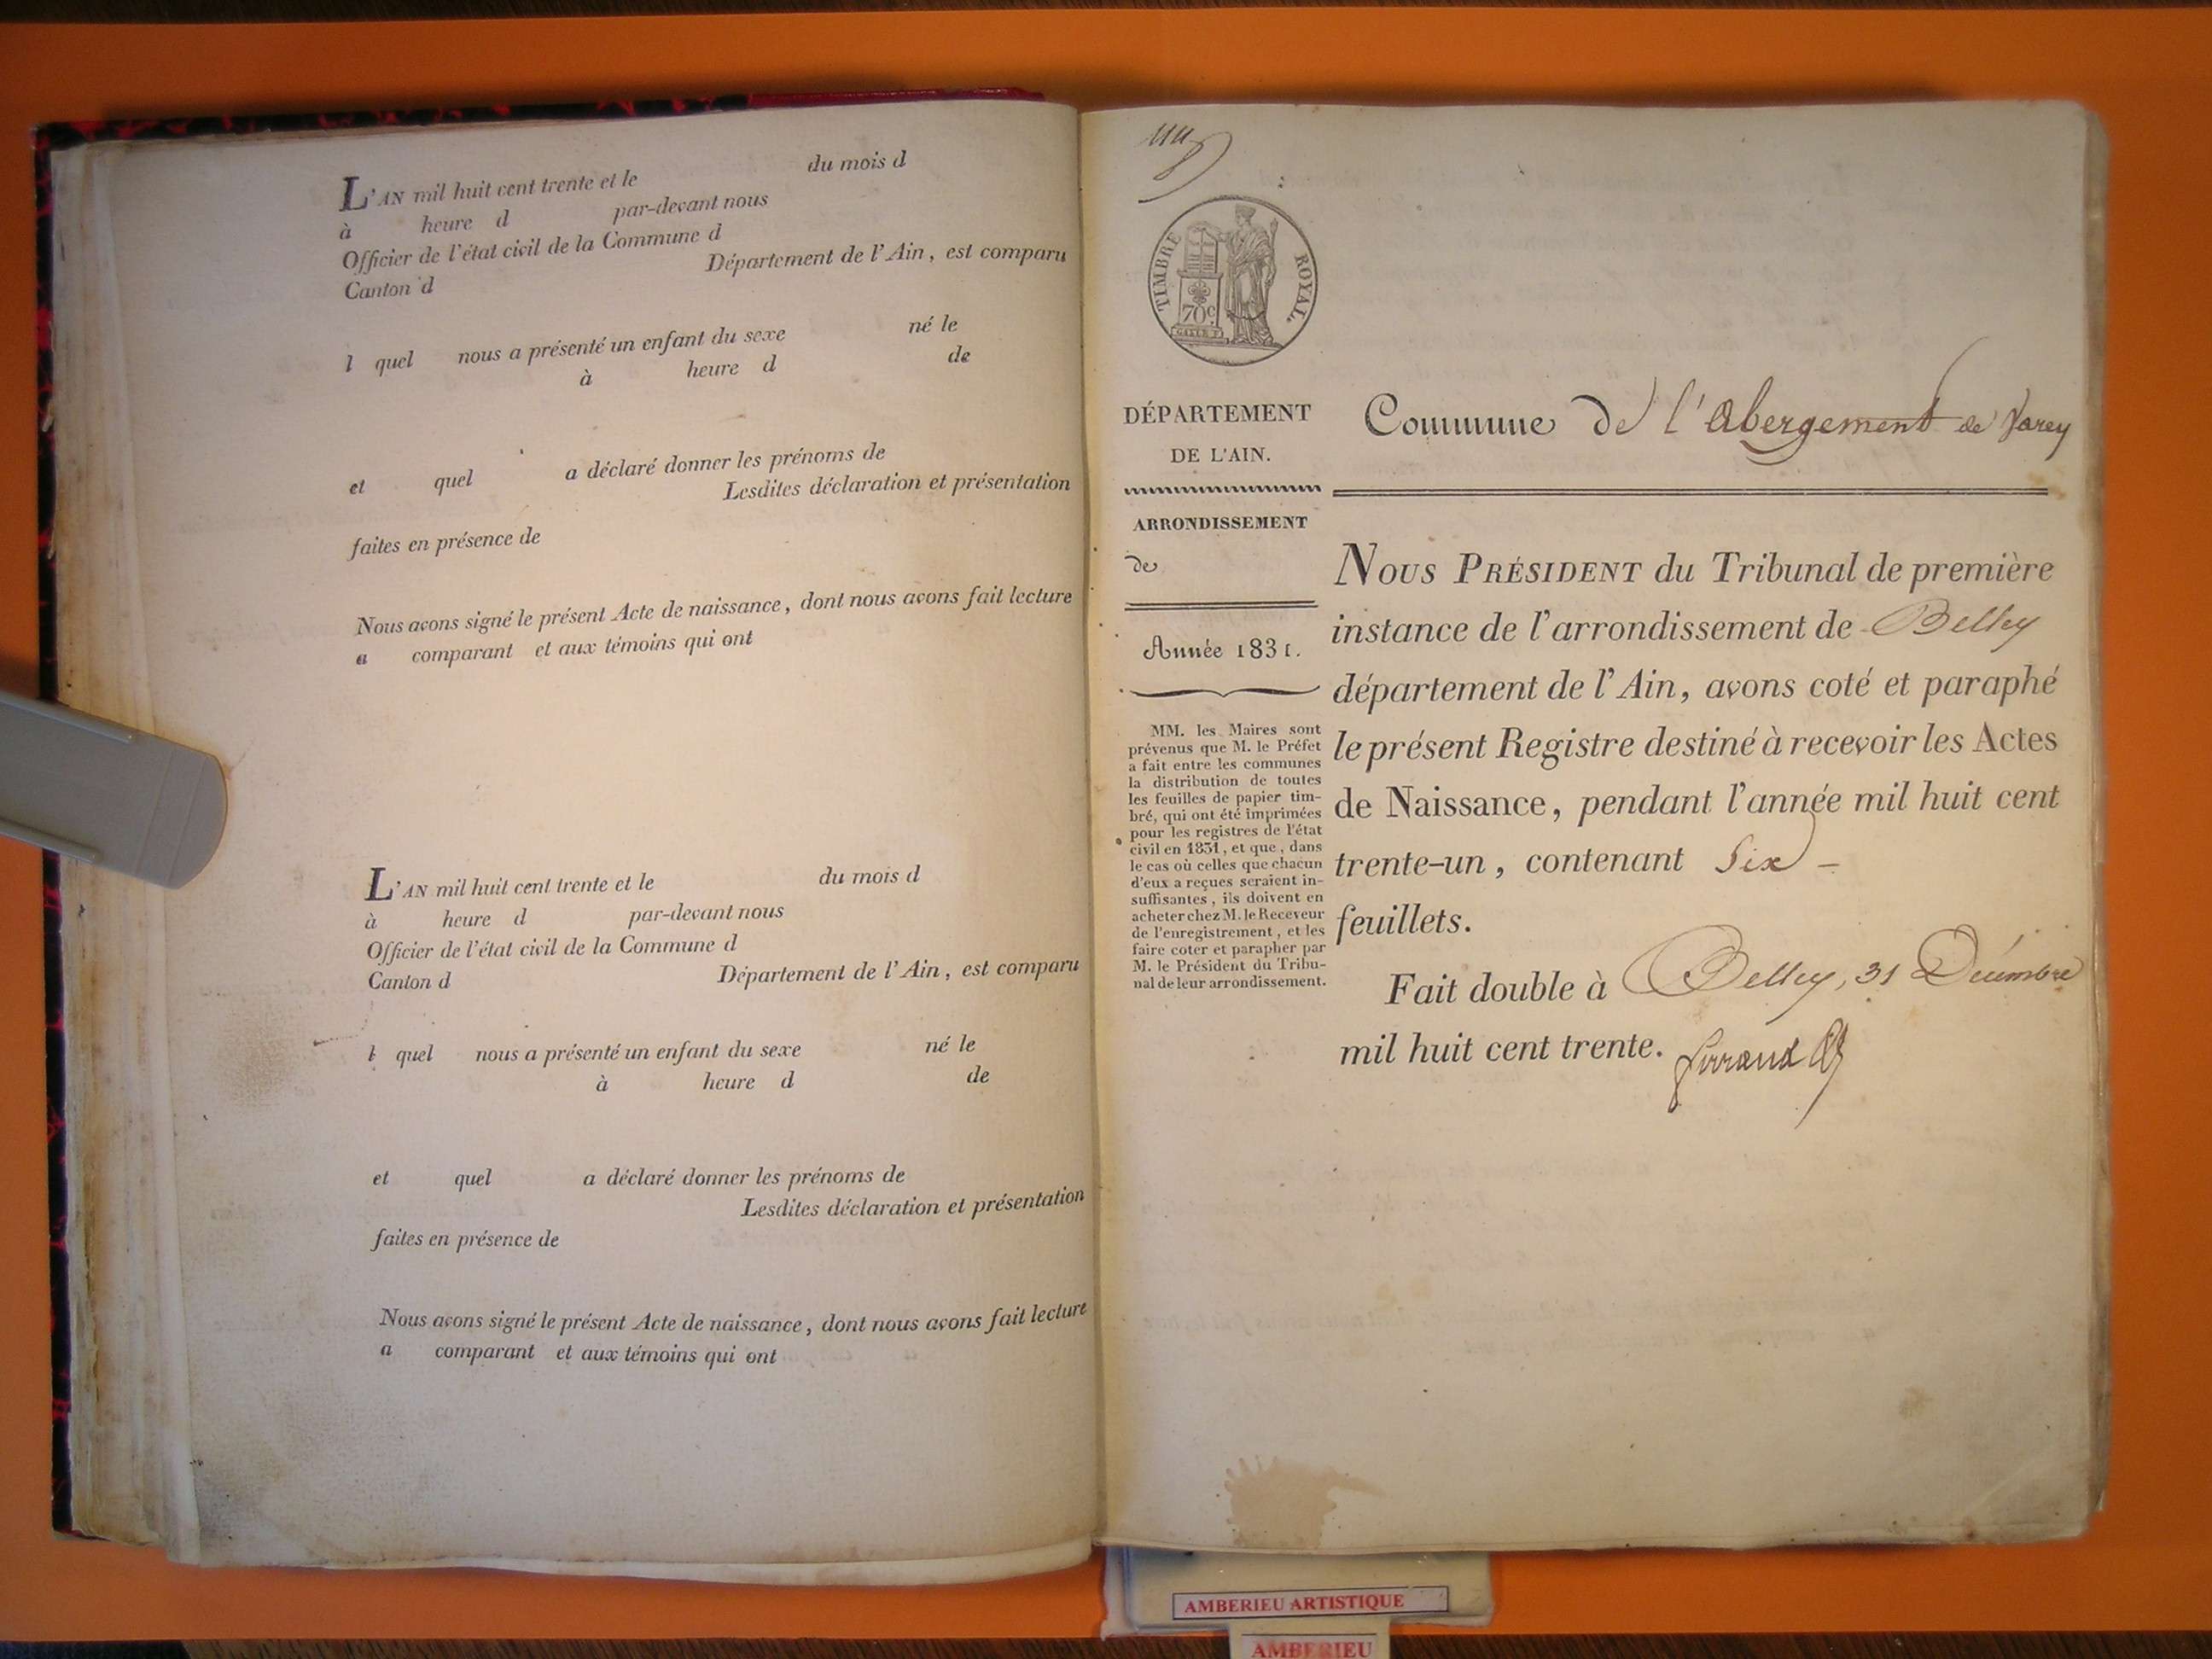 L'AN mil huit cent trente et le du mois d
à heure d par-devant nous
Officier de l'état civil de la Commune d
Canton d Département de l'Ain, est comparu
l quel nous a présenté un enfant du sexe né le
à heure d de
et quel a déclaré donner les prénoms de
Lesdites déclaration et présentation
faites en présence de
Nous avons signé le présent Acte de naissance, dont nous avons fait lecture
a comparant et aux témoins qui ont
L'AN mil huit cent trente et le du mois d
à heure d par-devant nous
Officier de l'état civil de la Commune d
Canton d Département de l'Ain, est comparu
l quel nous a présenté un enfant du sexe né le
à heure d de
et quel a déclaré donner les prénoms de
Lesdites déclaration et présentation
faites en présence de
Nous avons signé le présent Acte de naissance, dont nous avons fait lecture
a comparant et aux témoins qui ont
TIMBRE ROYAL.
70c.
DÉPARTEMENT
DE L'AIN.
ARRONDISSEMENT
de
Année 1831.
MM. les Maires sont
prévenus que M. le Préfet
a fait entre les communes
la distribution de toutes
les feuilles de papier tim-
bré, qui ont été imprimées
pour les registres de l'état
civil en 1831, et que, dans
le cas où celles que chacun
d'eux a reçues seraient in-
suffisantes, ils doivent en
acheter chez M. le Receveur
de l'enregistrement, et les
faire coter et parapher par
M. le Président du Tribu-
nal de leur arrondissement.
Commune de l'Abergement de Varey
NOUS PRÉSIDENT du Tribunal de première
instance de l'arrondissement de Belley
département de l'Ain, avons coté et paraphé
le présent Registre destiné à recevoir les Actes
de Naissance, pendant l'année mil huit cent
trente-un, contenant Six -
feuillets.
Fait double à Belley, 31 Décembre
mil huit cent trente.
AMBERIEU ARTISTIQUE
AMBERIEU